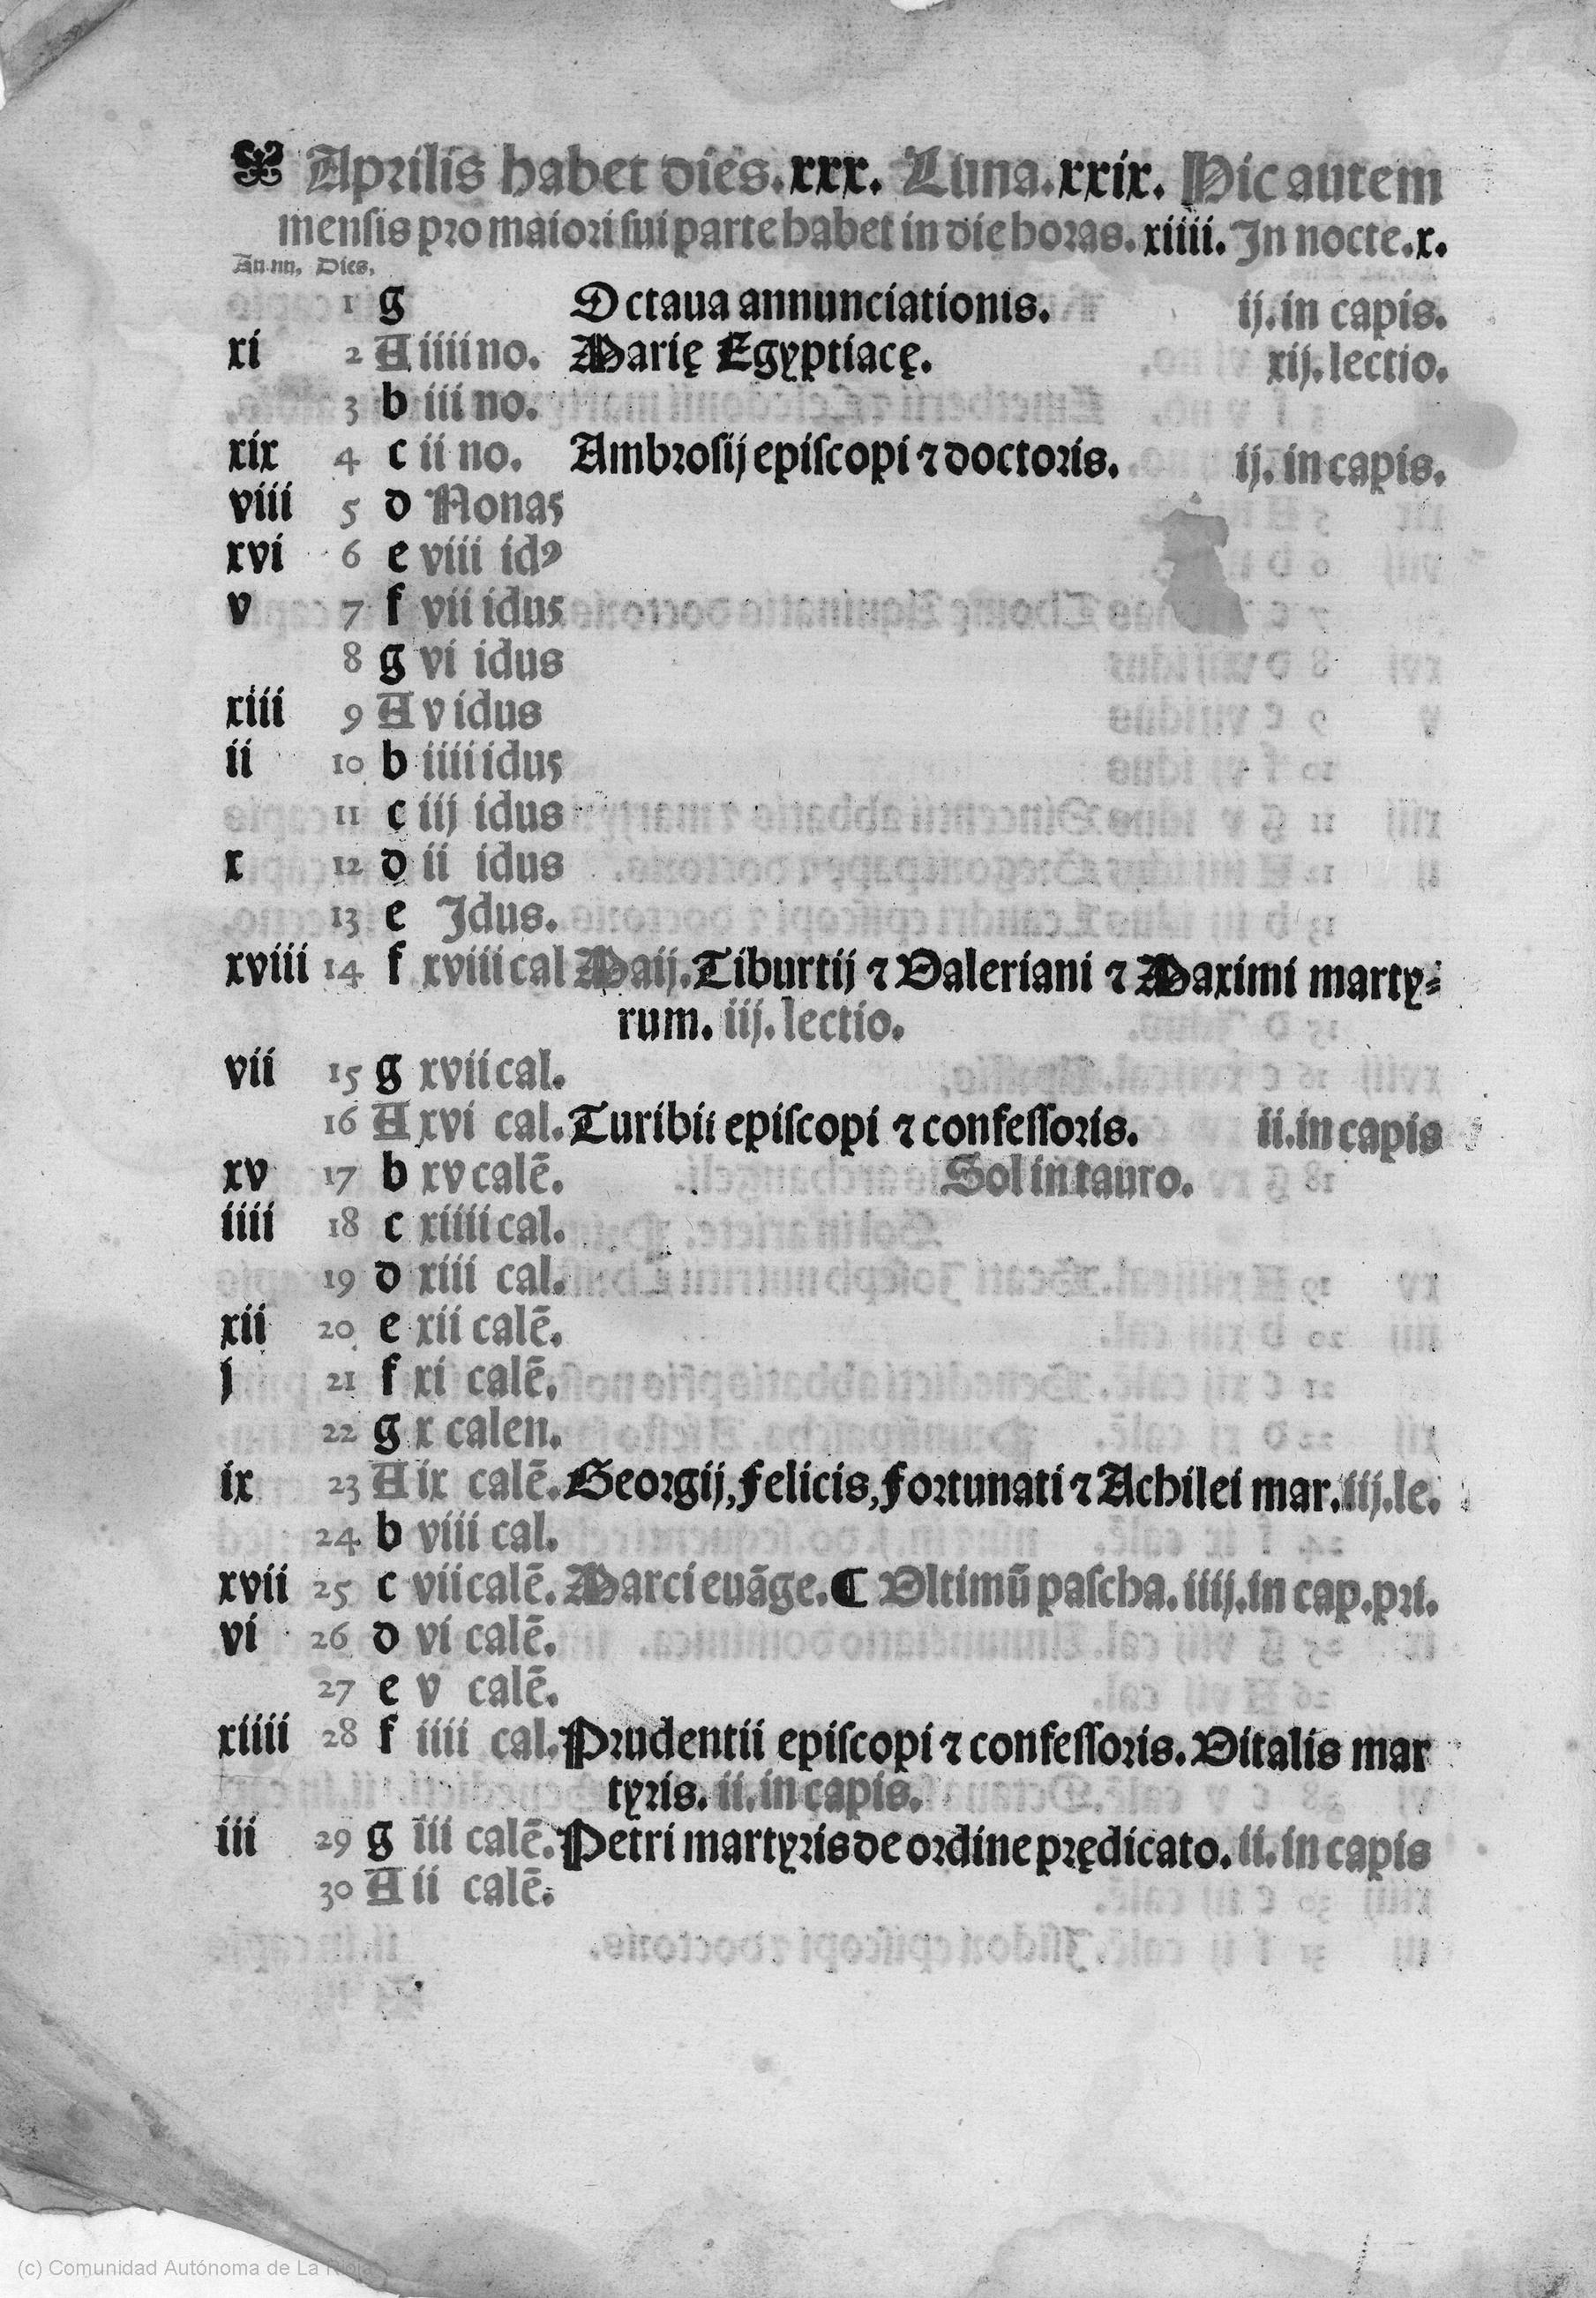 Aprilis habet dies.xxx. Luna.xxix. Hic autem
mensis pro maiori sui parte habet in die horas.xiiii. In nocte.x.
An.nu. Dies.
1 g Octaua annunciationis. ij. in capis.
xi 2 A iiii no. Marię Egyptiacę. xij. lectio.
3 b iii no.
xix 4 c ii no. Ambrosij episcopi ⁊ doctoris. ij. in capis.
viii 5 d Nonas
xvi 6 e viii idꝰ
v 7 f vii idus
8 g vi idus
xiii 9 A v idus
ii 10 b iiii idus
11 c iij idus
x 12 d ii idus
13 e Idus.
xviii 14 f xviii cal Maij. Tiburtij ⁊ Valeriani ⁊ Maximi marty-
rum. iij. lectio.
vii 15 g xvii cal.
16 A xvi cal. Turibii episcopi ⁊ confessoris. ii. in capis
xv 17 b xv calē. Sol in tauro.
iiii 18 c xiiii cal.
19 d xiii cal.
xii 20 e xii calē.
j 21 f xi calē.
22 g x calen.
ix 23 A ix calē. Georgij, Felicis, Fortunati ⁊ Achilei mar. iij. le.
24 b viii cal.
xvii 25 c vii calē. Marci euāge. ¶ Vltimū pascha. iiij. in cap. pri.
vi 26 d vi calē.
27 e v calē.
xiiii 28 f iiii cal. Prudentii episcopi ⁊ confessoris. Vitalis mar
tyris. ii. in capis.
iii 29 g iii calē. Petri martyris de ordine prędicato. ii. in capis
30 A ii calē.
(c) Comunidad Autónoma de La Rioja